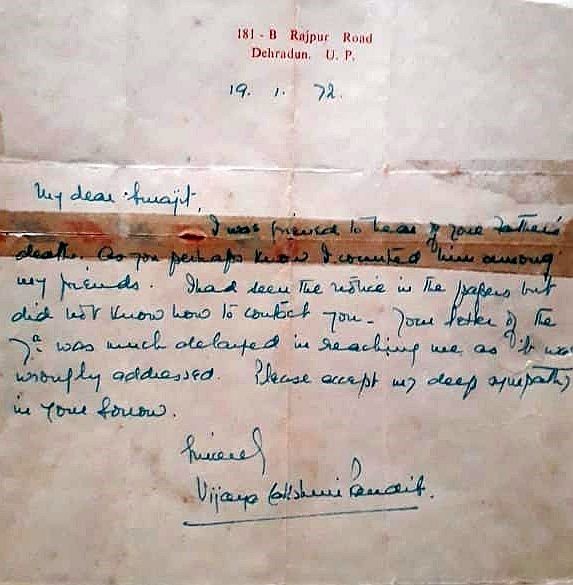 181 - B Rajpur Road
Dehradun. U. P.
19. 1. 72.
My dear
I was grieved to hear of your Father's
death. As you perhaps know I counted him among
my friends. I had seen the notice in the papers but
did not know how to contact you - Your letter of the
7th was much delayed in reaching me as it was
wrongly addressed. Please accept my deep sympathy
in your sorrow.
Sincerely
Vijaya Lakshmi Pandit.